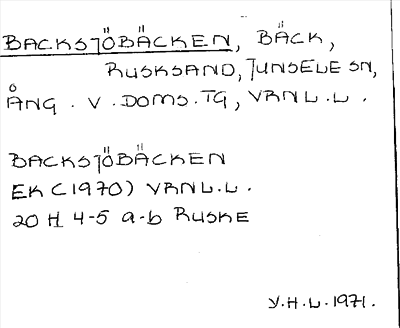 BACKSJÖBÄCKEN, BÄCK,
RUSKSAND, JUNSELE SN,
ÅNG. V. DOMS. TG, VRNL.L.
BACKSJÖBÄCKEN
EK (1970) VRNL.L.
20 H 4-5 a-b RUSKE
Y.H.L. 1971.